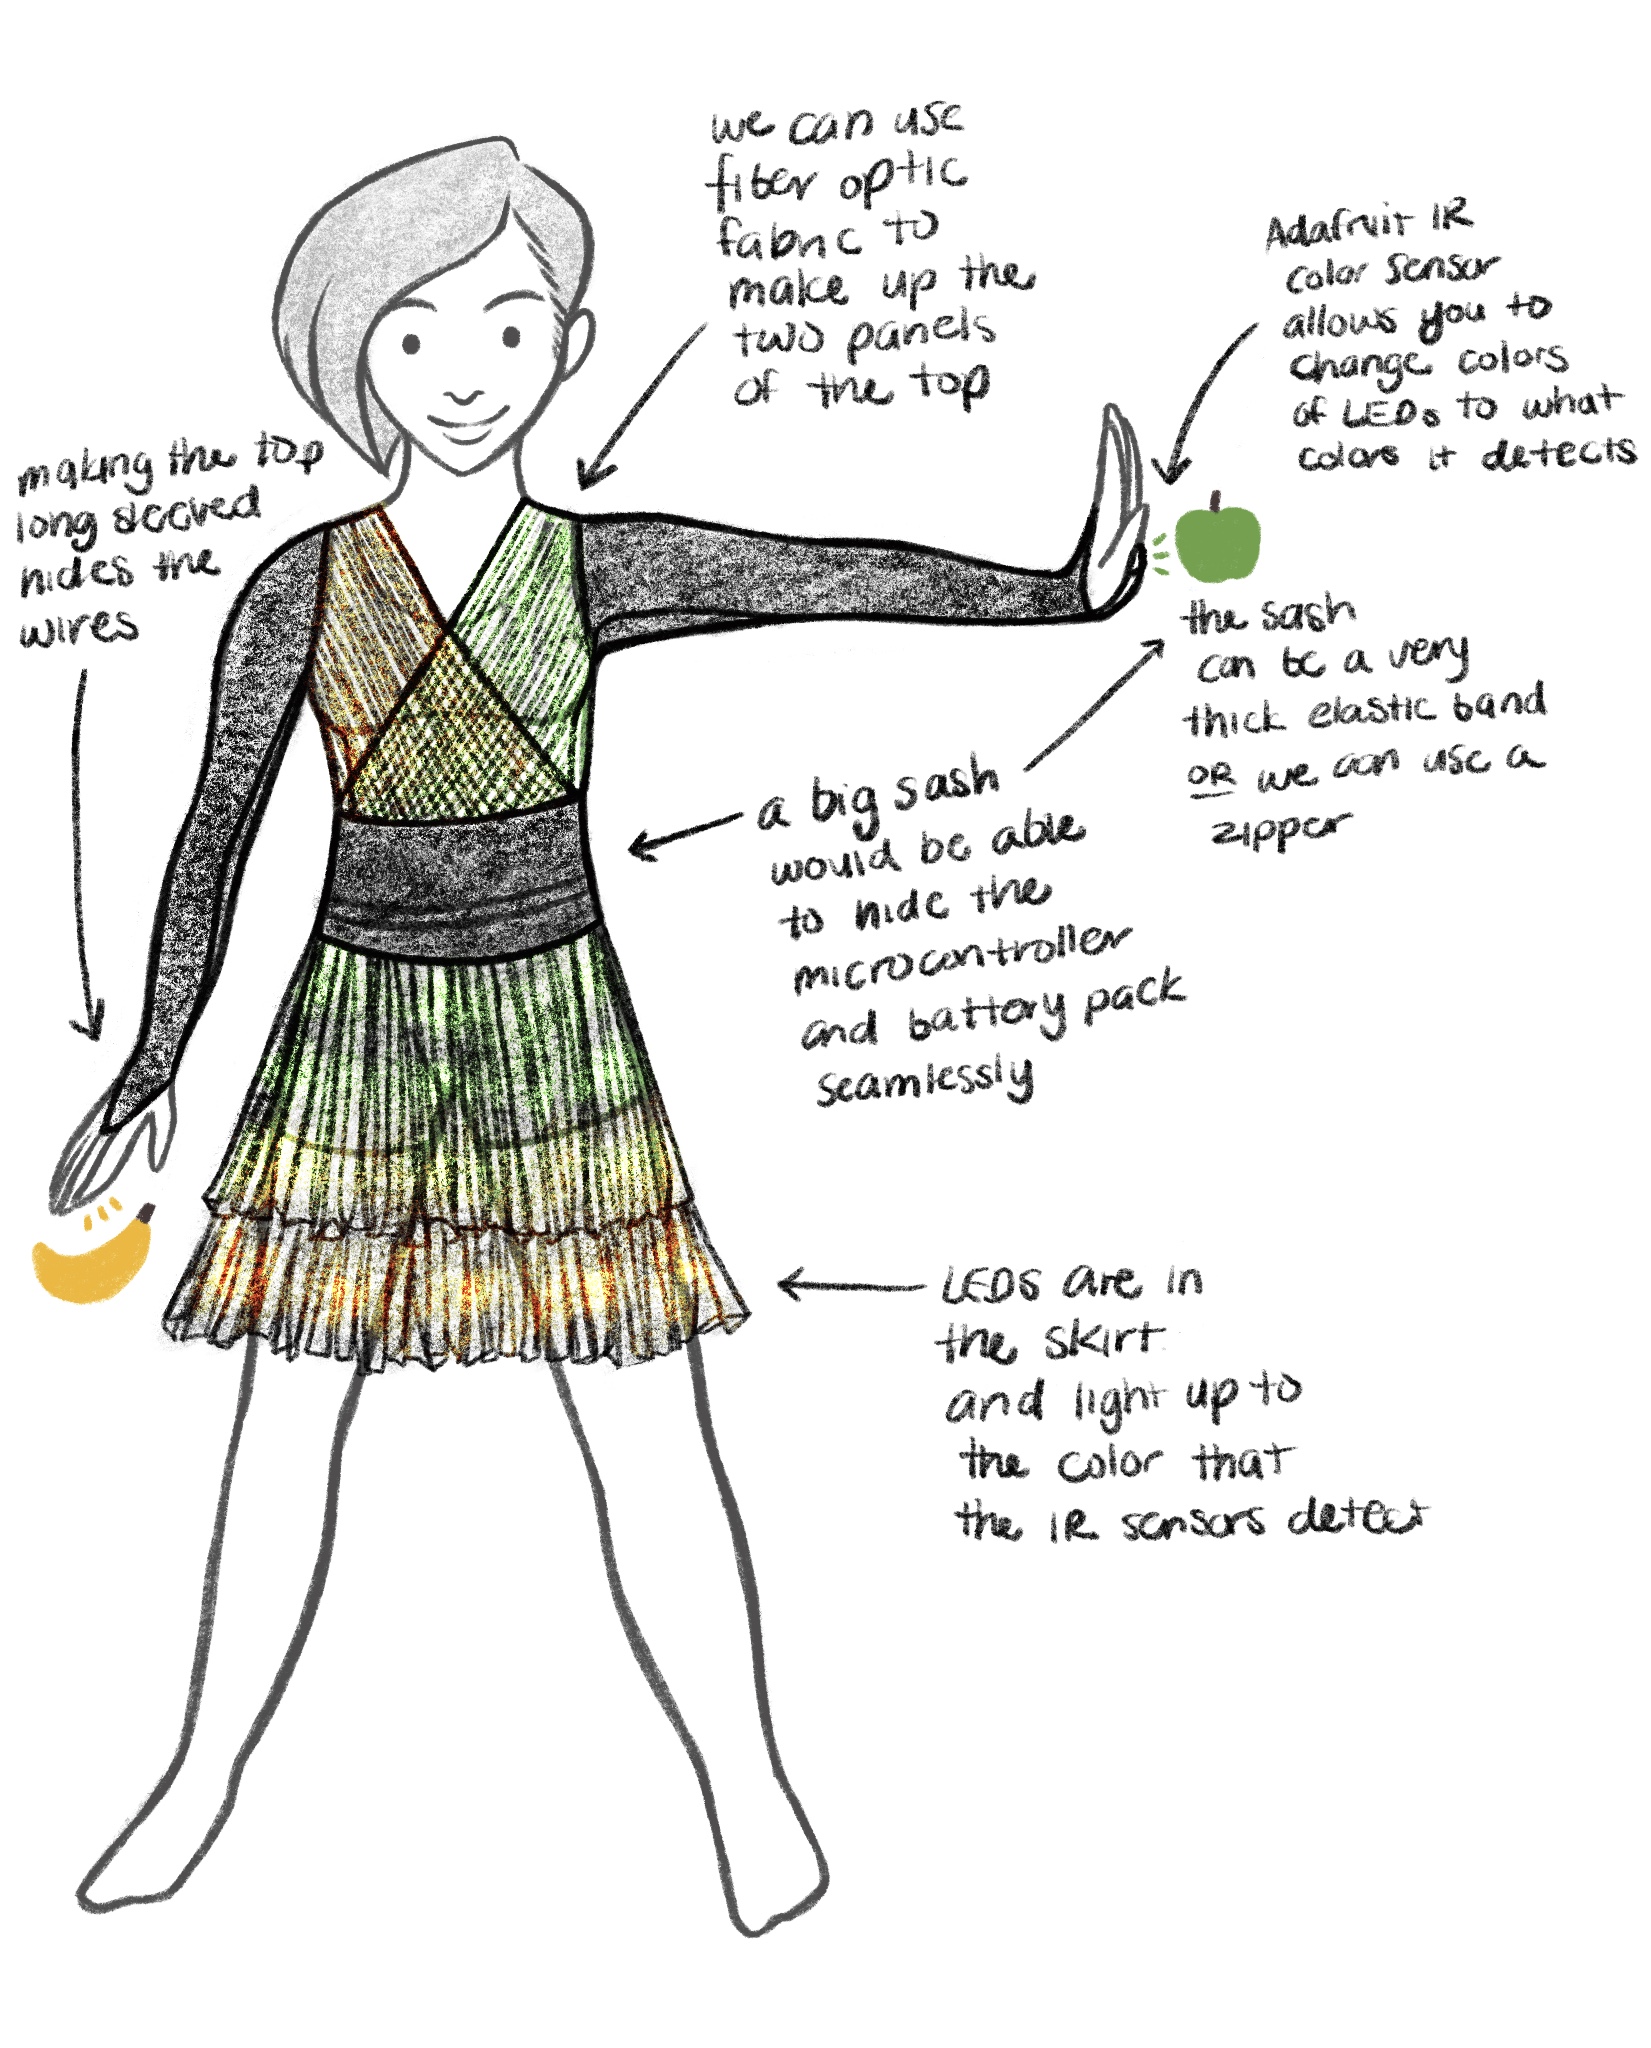 we can use
fiber optic
fabric to
make up the
two panels
of the top
Adafruit IR
color sensor
allows you to
change colors
of LEDs to what
colors it detects
making the top
long sleeved
hides the
wires
the sash
can be a very
thick elastic band
OR we can use a
zipper
a big sash
would be able
to hide the
microcontroller
and battery pack
seamlessly
LEDs are in
the skirt
and light up to
the color that
the IR sensors detect